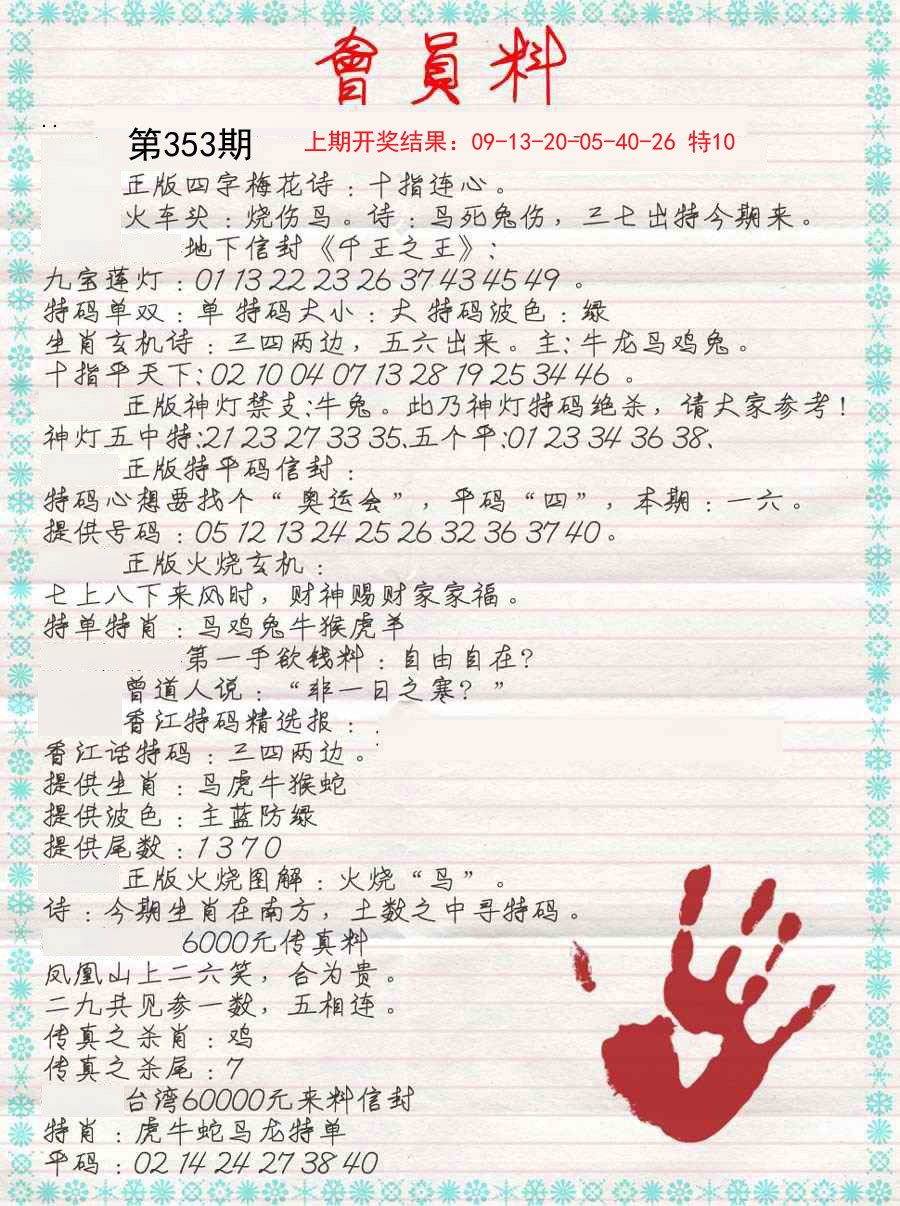 會員料
第353期 上期开奖结果：09-13-20-05-40-26 特10
正版四字梅花诗：十指连心。
火车头：烧伤鸟。诗：鸟死兔伤，三七出特今期来。
地下信封《千王之王》：
九宝莲灯：01 13 22 23 26 37 43 45 49 。
特码单双：单 特码大小：大 特码波色：绿
生肖玄机诗：三四两边，五六出来。主：牛龙鸟鸡兔。
十指平天下：02 10 04 07 13 28 19 25 34 46 。
正版神灯禁支：牛兔。此乃神灯特码绝杀，请大家参考！
神灯五中特：21 23 27 33 35、五个平：01 23 34 36 38、
正版特平码信封：
特码心想要找个“奥运会”，平码“四”，本期：一六。
提供号码：05 12 13 24 25 26 32 36 37 40。
正版火烧玄机：
七上八下来风时，财神赐财家家福。
特单特肖：鸟鸡兔牛猴虎羊
第一手欲钱料：自由自在？
曾道人说：“非一日之寒？”
香江特码精选报：
香江话特码：三四两边。
提供生肖：鸟虎牛猴蛇
提供波色：主蓝防绿
提供尾数：1 3 7 0
正版火烧图解：火烧“鸟”。
诗：今期生肖在南方，土数之中寻特码。
6000元传真料
凤凰山上二六笑，合为贵。
二九共见参一数，五相连。
传真之杀肖：鸡
传真之杀尾：7
台湾60000元来料信封
特肖：虎牛蛇鸟龙特单
平码：02 14 24 27 38 40